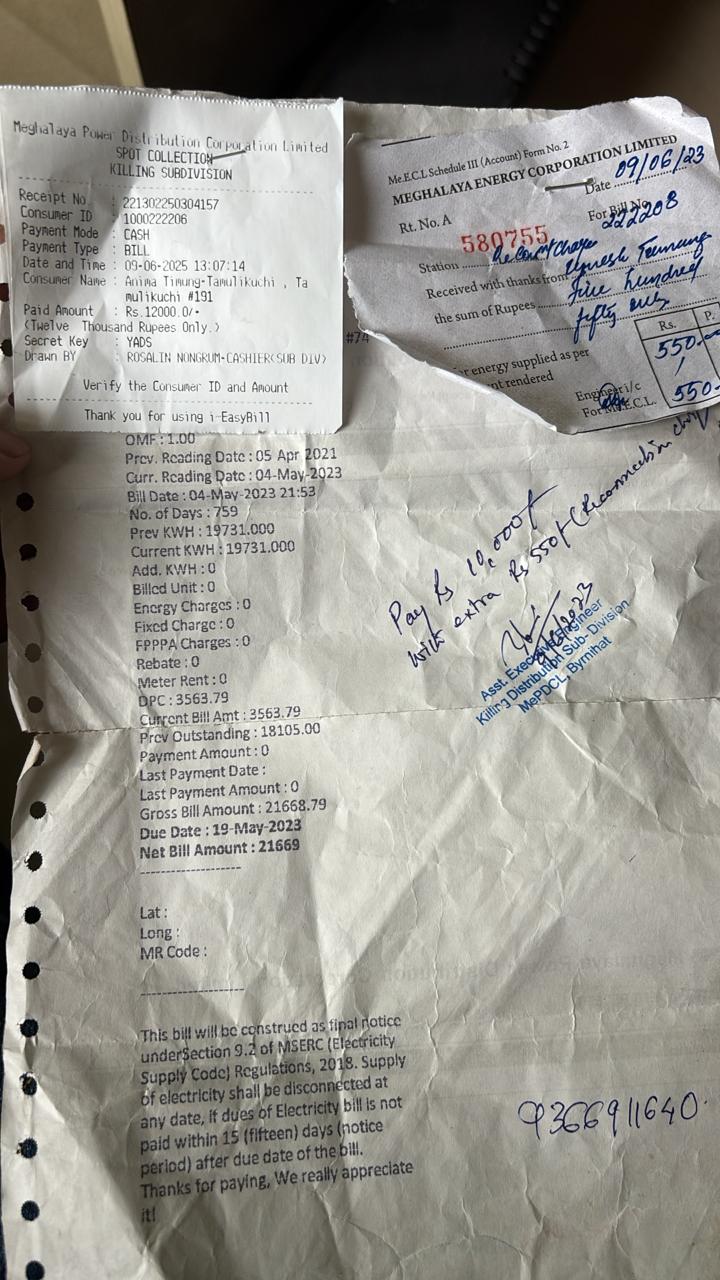 Meghalaya Power Distribution Corporation Limited
SPOT COLLECTION
KILLING SUBDIVISION
Receipt No : 221302250304157
Consumer ID : 1000222206
Payment Mode : CASH
Payment Type : BILL
Date and Time : 09-06-2025 13:07:14
Consumer Name : Anima Timung-Tamulikuchi , Ta
mulikuchi #191
Paid Amount : Rs.12000.0/-
(Twelve Thousand Rupees Only.)
Secret Key : YADS
Drawn BY : ROSALIN NONGRUM-CASHIER(SUB DIV)
Verify the Consumer ID and Amount
Thank you for using i-EasyBill
Me.E.C.L Schedule III (Account) Form No. 2
MEGHALAYA ENERGY CORPORATION LIMITED
Date 09/06/23
Rt. No. A
580755
For Bill No.
222208
Station
Received with thanks from
the sum of Rupees five hundred
fifty only
Rs. P.
energy supplied as per
nt rendered
550
Engineer i/c
For Me.E.C.L.
550
#74
OMF : 1.00
Prev. Reading Date : 05 Apr 2021
Curr. Reading Date : 04-May-2023
Bill Date : 04-May-2023 21:53
No. of Days : 759
Prev KWH : 19731.000
Current KWH : 19731.000
Add. KWH : 0
Billed Unit : 0
Energy Charges : 0
Fixed Charge : 0
FPPPA Charges : 0
Rebate : 0
Meter Rent : 0
DPC : 3563.79
Current Bill Amt : 3563.79
Prev Outstanding : 18105.00
Payment Amount : 0
Last Payment Date :
Last Payment Amount : 0
Gross Bill Amount : 21668.79
Due Date : 19-May-2023
Net Bill Amount : 21669
Pay Rs 10,000/-
with extra Rs 550/- (Reconnection
Asst. Executive Engineer
Killing Distribution Sub- Division
MePDCL, Byrnihat
Lat :
Long :
MR Code :
This bill will be construed as final notice
underSection 9.2 of MSERC (Electricity
Supply Code) Regulations, 2018. Supply
of electricity shall be disconnected at
any date, if dues of Electricity bill is not
paid within 15 (fifteen) days (notice
period) after due date of the bill.
Thanks for paying, We really appreciate
it!
9366911640